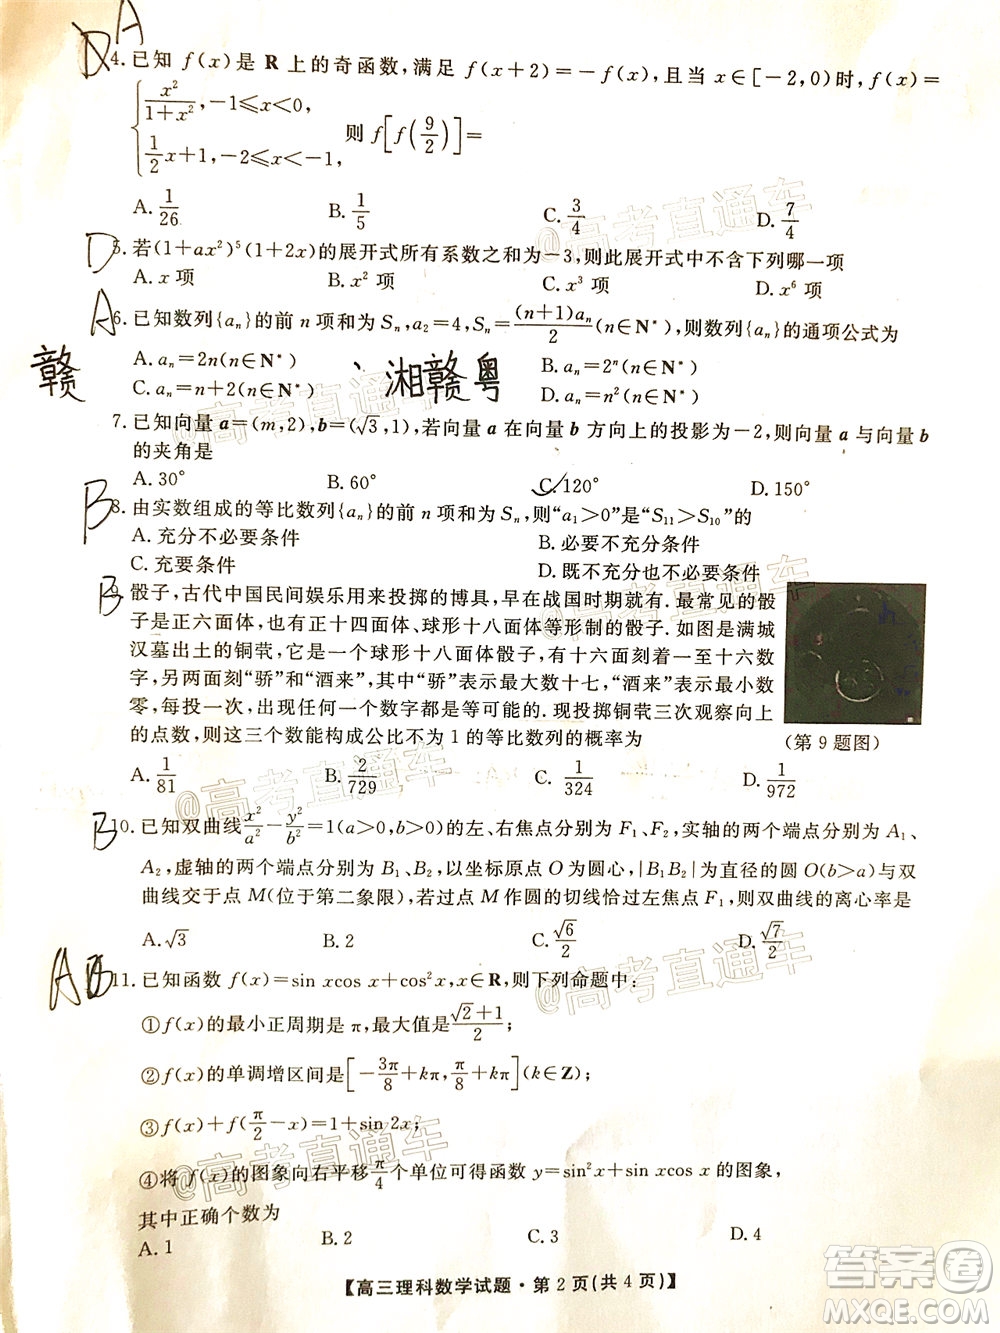 A
D
4.已知 f(x)是 R 上的奇函数,满足 f(x+2)=-f(x),且当 x∈[-2,0)时,f(x)=
{x²/(1+x²),-1≤x<0,
1/2x+1,-2≤x<-1, 则 f[f(9/2)]=
A.1/26 B.1/5 C.3/4 D.7/4
D
5.若(1+ax²)⁵(1+2x)的展开式所有系数之和为-3,则此展开式中不含下列哪一项
A. x 项 B. x² 项 C. x³ 项 D. x⁶ 项
A
6.已知数列{aₙ}的前 n 项和为 Sₙ,a₂=4,Sₙ=(n+1)aₙ/2(n∈N*),则数列{aₙ}的通项公式为
A. aₙ=2n(n∈N*) B. aₙ=2ⁿ(n∈N*)
赣 、湘赣粤
C. aₙ=n+2(n∈N*) D. aₙ=n²(n∈N*)
7.已知向量 a=(m,2),b=(√3,1),若向量 a 在向量 b 方向上的投影为-2,则向量 a 与向量 b
的夹角是
A.30° B.60° C.120° D.150°
B
8.由实数组成的等比数列{aₙ}的前 n 项和为 Sₙ,则“a₁>0”是“S₁₁>S₁₀”的
A.充分不必要条件 B.必要不充分条件
C.充要条件 D.既不充分也不必要条件
B
骰子,古代中国民间娱乐用来投掷的博具,早在战国时期就有.最常见的骰
子是正六面体,也有正十四面体、球形十八面体等形制的骰子.如图是满城
汉墓出土的铜茕,它是一个球形十八面体骰子,有十六面刻着一至十六数
字,另两面刻“骄”和“酒来”,其中“骄”表示最大数十七,“酒来”表示最小数
零,每投一次,出现任何一个数字都是等可能的.现投掷铜茕三次观察向上
的点数,则这三个数能构成公比不为 1 的等比数列的概率为
(第 9 题图)
A.1/81 B.2/729 C.1/324 D.1/972
B
10.已知双曲线x²/a²-y²/b²=1(a>0,b>0)的左、右焦点分别为 F₁、F₂,实轴的两个端点分别为 A₁、
A₂,虚轴的两个端点分别为 B₁、B₂,以坐标原点 O 为圆心,|B₁B₂|为直径的圆 O(b>a)与双
曲线交于点 M(位于第二象限),若过点 M 作圆的切线恰过左焦点 F₁,则双曲线的离心率是
A.√3 B.2 C.√6/2 D.√7/2
A
11.已知函数 f(x)=sin xcos x+cos²x,x∈R,则下列命题中:
①f(x)的最小正周期是 π,最大值是(√2+1)/2;
②f(x)的单调增区间是[-3π/8+kπ,π/8+kπ](k∈Z);
③f(x)+f(π/2-x)=1+sin 2x;
④将 f(x)的图象向右平移π/4个单位可得函数 y=sin²x+sin xcos x 的图象,
其中正确个数为
A.1 B.2 C.3 D.4
【高三理科数学试题·第 2 页(共 4 页)】
@高考直通车
@高考直通车
@高考直通车
@高考直通车
@高考直通车
@高考直通车
答案圈
MXQE.COM